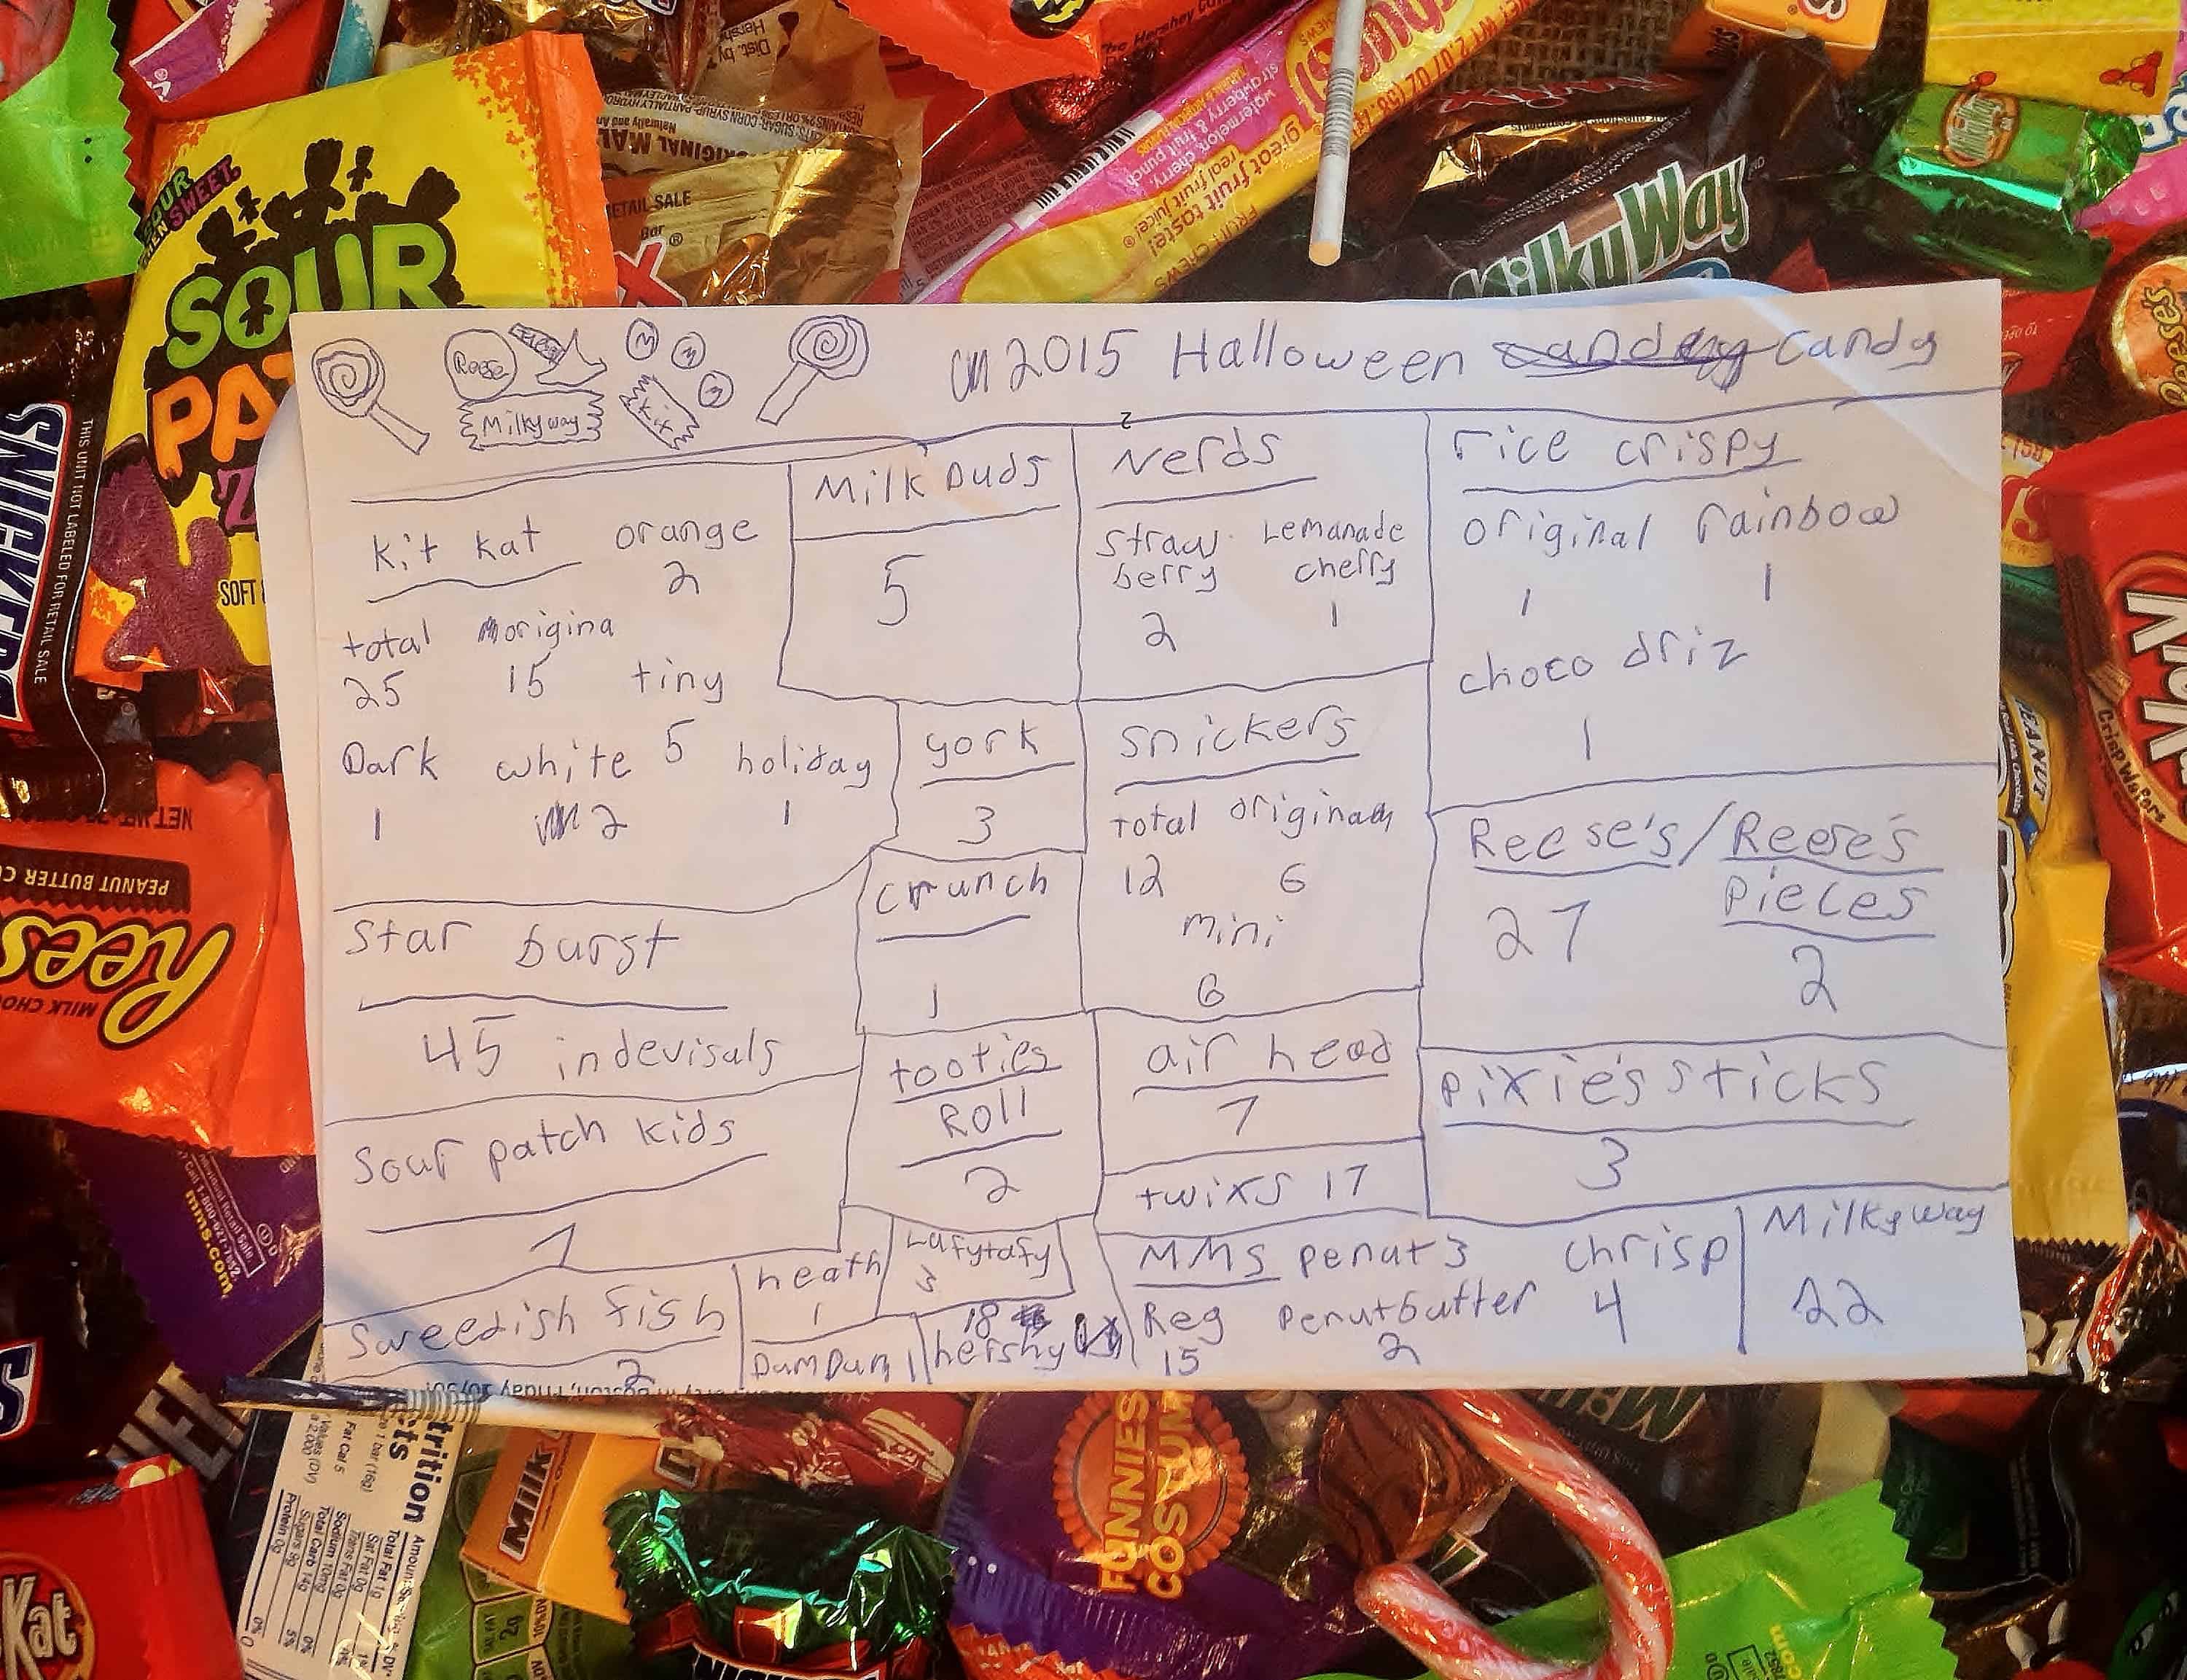 Reese
Reese
M
M
M
Milkyway
Kit
2015 Halloween candy
Kit Kat orange
2
total origina
25 15 tiny
5
Dark white holiday
1 2 1
Milk Duds
5
Nerds
straw berry Lemanade cherry
2 1
rice crispy
original rainbow
1 1
choco driz
1
york
3
snickers
total original
12 6
mini
6
Reese's/Reese's
pieces
27 2
crunch
1
star burst
45 indevisals
tooties
Roll
2
air head
7
pixie's sticks
3
Sour patch kids
1
twixs 17
Sweedish fish
2
heath
1
Lafytafy
3
DumDum 1
18
hershy
MMS penut 3 chrisp
4
Reg penutbutter
15 2
Milkyway
22
SOUR
THEN SWEET.
SOUR
SOFT
SNICKERS
THIS UNIT NOT LABELED FOR RETAIL SALE
NET WT
PEANUT BUTTER
Reese
MILK CHO
mms.com
Dist. by
Hershe
The Hershey
ORIGINAL
RETAIL SALE
Bar
great fruit taste!
real fruit juice!
watermelon, cherry,
strawberry & fruit punch
FRUIT CHEWS
MilkyWay
Reese's
Crisp Wafers
PEANUT
Milk
FUNNIES
COSTUM
Kat
Total Fat 1g
Sat Fat 0g
Trans Fat 0g
Sodium 10mg
Total Carb 14g
Sugars 9g
Protein 0g